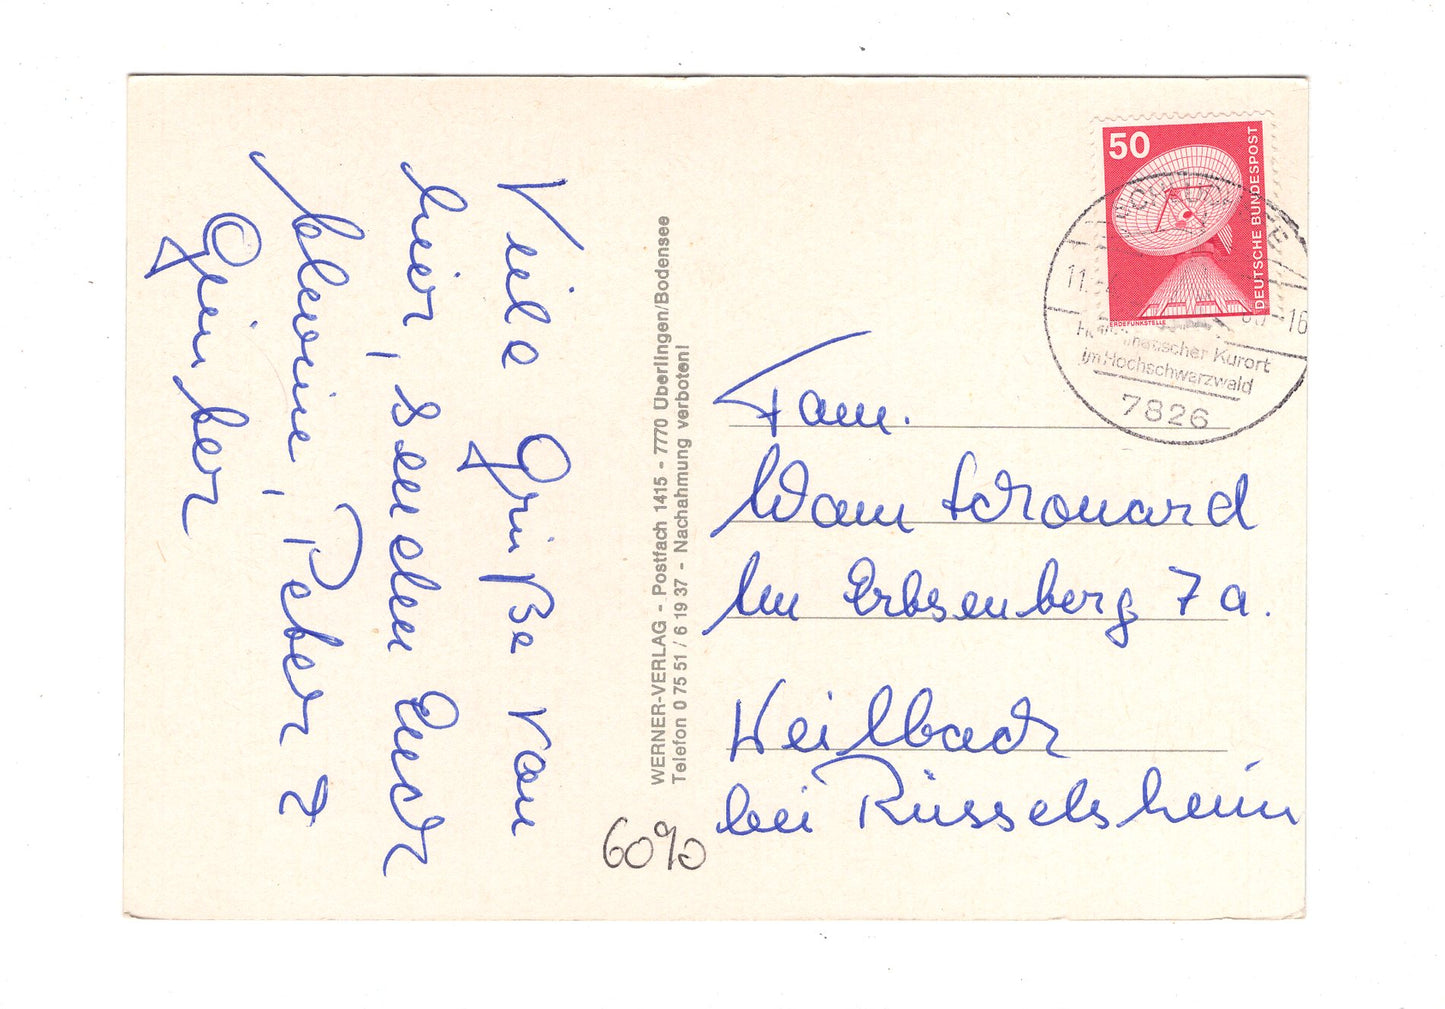 Viele Grüße von
hier, senden Euch
Peter &
Günter
WERNER-VERLAG - Postfach 1415 - 7770 Überlingen/Bodensee
Telefon 0 75 51 / 6 19 37 - Nachahmung verboten!
50
DEUTSCHE BUNDESPOST
ERDEFUNKSTELLE
11.
-16
Kurort
im Hochschwarzwald
7826
Fam.
Im Erbsenberg 7a.
Weilbach
bei Rüsselsheim
6090